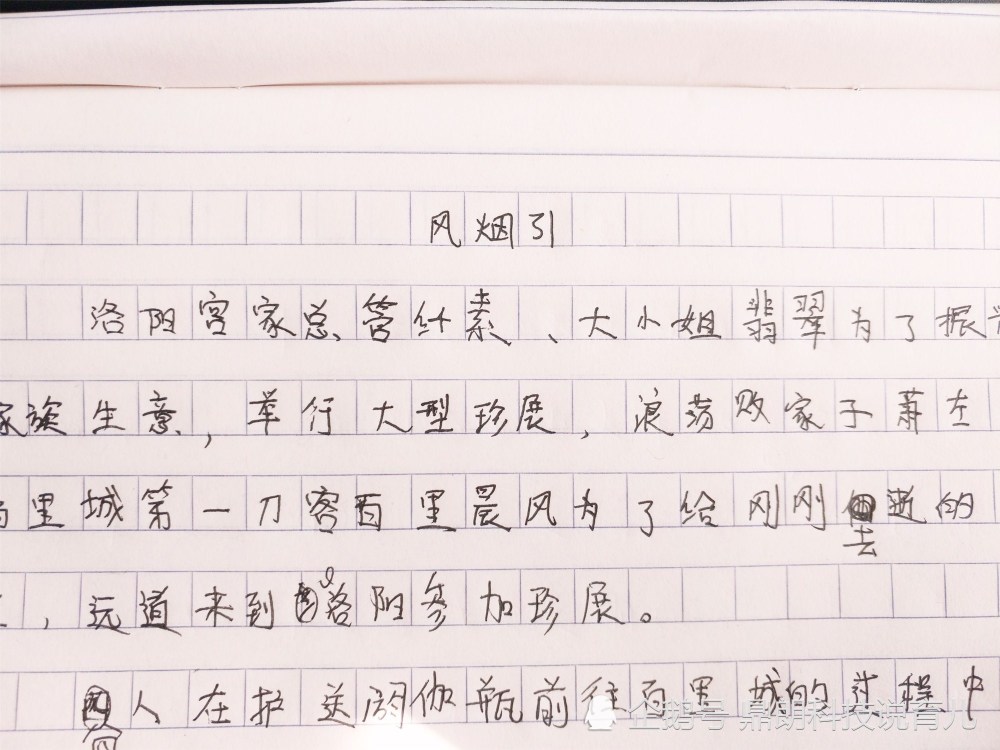 风烟引
洛阳宫家总管纤素、大小姐翡翠为了振兴
家族生意,举行大型珍展,浪荡败家子萧左
里城第一刀客百里晨风为了给刚刚去逝的
,远道来到洛阳参加珍展。
人在护送阏伽瓶前往百里城的过程中
企鹅号 鼎朗科技说育儿